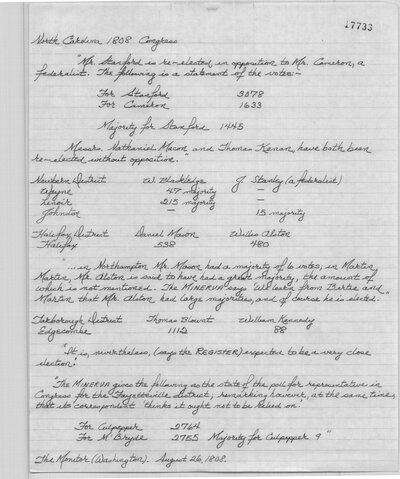 17733
North Carolina 1808 Congress
"Mr. Stanford is re-elected in opposition to Mr. Cameron, a
federalist. The following is a statement of the votes:-
For Stanford 3078
For Cameron 1633
Majority for Stanford 1445
Messrs. Nathaniel Macon and Thomas Kenan, have both been
re-elected without opposition."
Newbern District W. Blackledge J. Stanley (a federalist)
Wayne 47 majority —
Lenoir 215 majority —
Johnston — 15 majority
Halifax District Daniel Mason Willis Alston
Halifax 538 480
"...in Northampton Mr. Mason had a majority of 6 votes, in Martin,
Martin, Mr. Alston is said to have had a great majority, the amount of
which is not mentioned. The MINERVA says 'We learn from Bertie and
Martin that Mr. Alston had large majorities, and of course he is elected.'"
Tarborough District Thomas Blount William Kennedy
Edgecombe 1112 88
"It is, nevertheless, (says the REGISTER) expected to be a very close
election."
"The MINERVA gives the following as the state of the poll for representative in
Congress for the Fayetteville district; remarking however, at the same time,
that its correspondent thinks it ought not to be relied on.
For Culpepper 2764
For M Bryde 2755 Majority for Culpepper 9"
The Monitor (Washington). August 26, 1808.